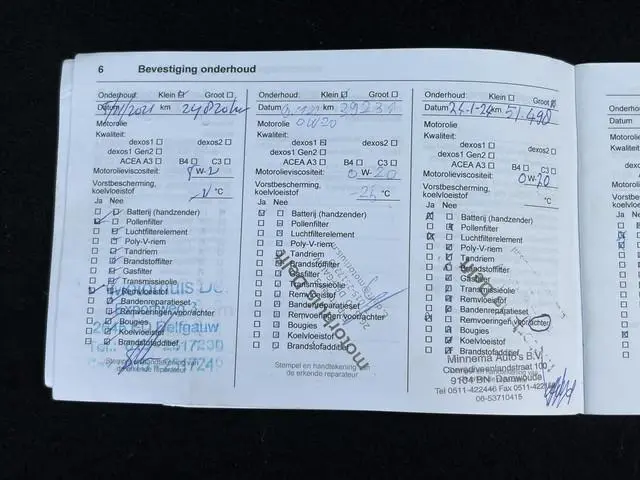 6 Bevestiging onderhoud
Onderhoud: Klein Groot
Datum km 24820km
Motorolie
Kwaliteit:
dexos1 dexos2
dexos1 Gen2
ACEA A3 B4 C3
Motorolieviscositeit: W-
Vorstbescherming,
koelvloeistof °C
Ja Nee
Batterij (handzender)
Pollenfilter
Luchtfilterelement
Poly-V-riem
Tandriem
Brandstoffilter
Gasfilter
Transmissieolie
Remvloeistof
Bandenreparatieset
Remvoeringen voor/achter
Bougies
Koelvloeistof
Brandstofadditief
Delfgauw
Onderhoud: Klein Groot
Datum km 39231
Motorolie 0W20
Kwaliteit:
dexos1 dexos2
dexos1 Gen2
ACEA A3 B4 C3
Motorolieviscositeit: 0W-20
Vorstbescherming,
koelvloeistof 25 °C
Ja Nee
Batterij (handzender)
Pollenfilter
Luchtfilterelement
Poly-V-riem
Tandriem
Brandstoffilter
Gasfilter
Transmissieolie
Remvloeistof
Bandenreparatieset
Remvoeringen voor/achter
Bougies
Koelvloeistof
Brandstofadditief
Stempel en handtekening van
de erkende reparateur
Onderhoud: Klein Groot
Datum 24-1-24 km 51.490
Motorolie
Kwaliteit:
dexos1 dexos2
dexos1 Gen2
ACEA A3 B4 C3
Motorolieviscositeit: 0W-20
Vorstbescherming,
koelvloeistof °C
Ja Nee
Batterij (handzender)
Pollenfilter
Luchtfilterelement
Poly-V-riem
Tandriem
Brandstoffilter
Gasfilter
Transmissieolie
Remvloeistof
Bandenreparatieset
Remvoeringen voor/achter
Bougies
Koelvloeistof
Brandstofadditief
Minnema Auto's B.V.
9104 BN Damwoude
Tel 0511-422446 Fax 0511-422
06-53710415
Onderho
Datum
Motorolie
Kwaliteit